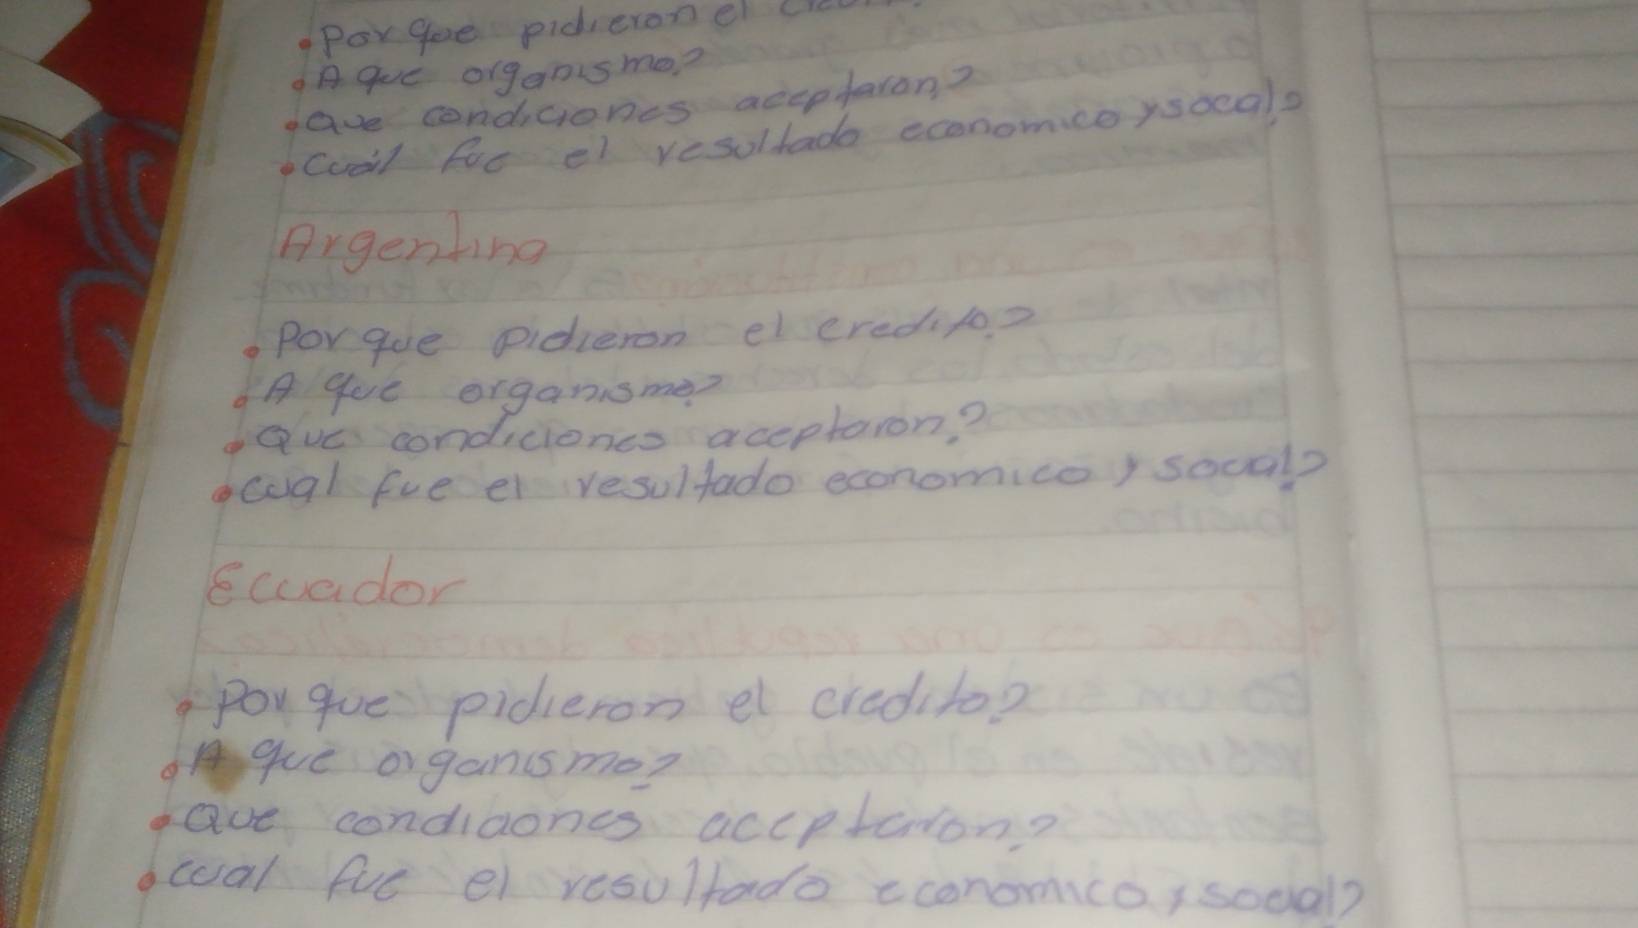 • Por que pidieron el
• A que organismo?
• Que condiciones aceptaron?
• Cuál fue el resultado economico y socal?
Argentina
• Por que pidieron el credito?
• A que organismo?
• Que condiciones aceptaron?
• cual fue el resultado economico y social?
Ecuador
• Por que pidieron el credito?
• A que organismo?
• Que condiciones aceptaron?
• cual fue el resultado economico y social?